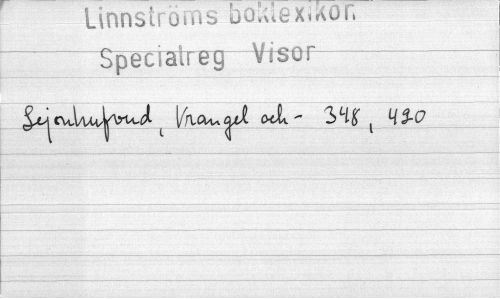 Linnströms boklexikon
Specialreg Visor
Lejonhufvud, Vrangel och - 348, 420